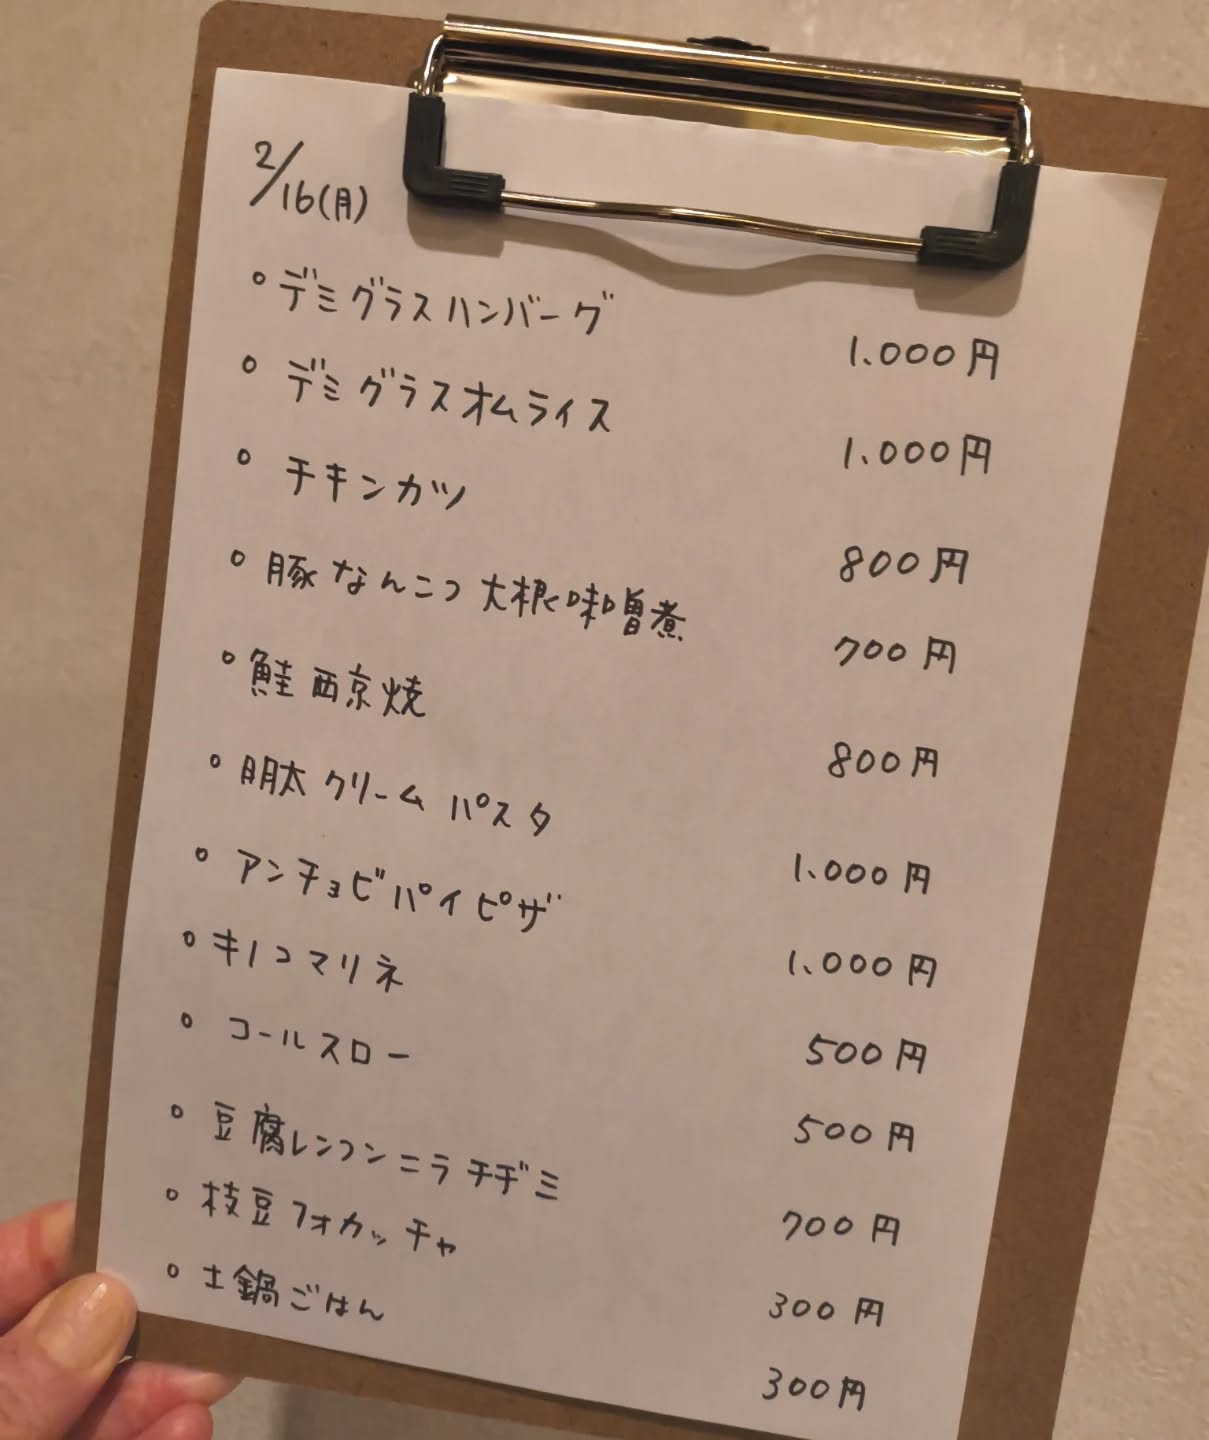 2/16(月)
○ デミグラスハンバーグ 1.000円
○ デミグラスオムライス 1.000円
○ チキンカツ 800円
○ 豚なんこつ大根味噌煮 700円
○ 鮭西京焼 800円
○ 明太クリームパスタ 1.000円
○ アンチョビパイピザ 1.000円
○ キノコマリネ 500円
○ コールスロー 500円
○ 豆腐レンコンニラチヂミ 700円
○ 枝豆フォカッチャ 300円
○ 土鍋ごはん 300円